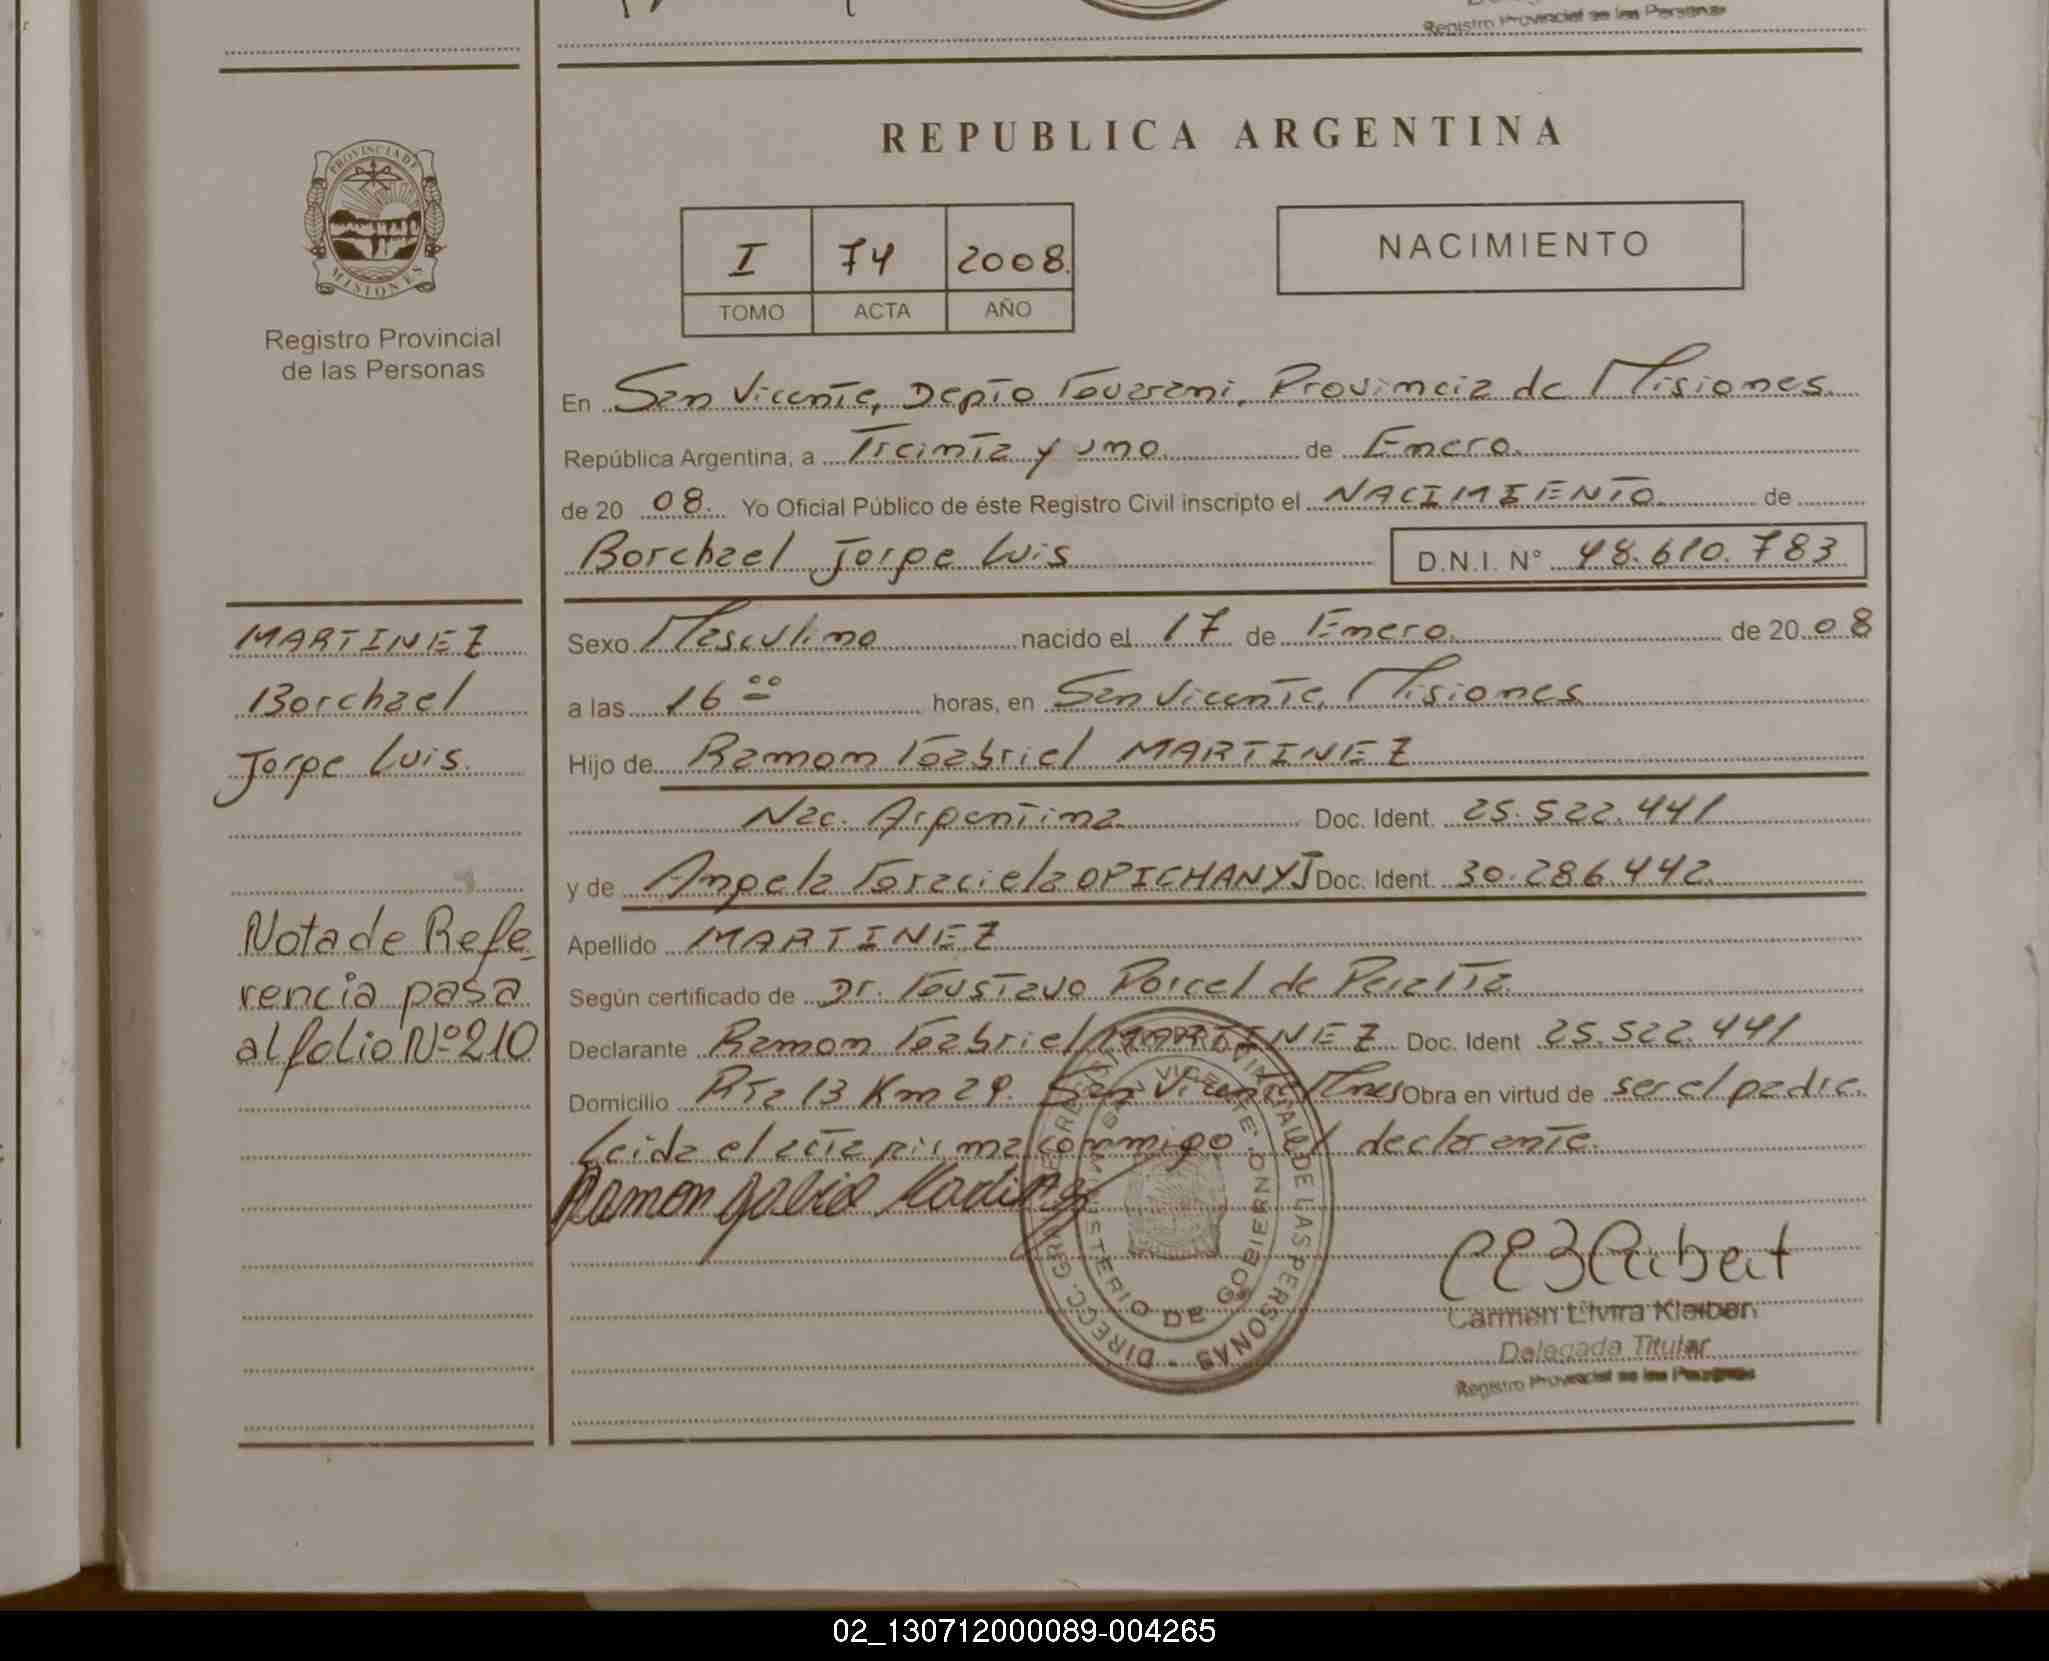 Registro Provincial de las Personas
REPUBLICA ARGENTINA
PROVINCIA DE
MISIONES
Registro Provincial
de las Personas
I 74 2008.
TOMO ACTA AÑO
NACIMIENTO
En San Vicente, Depto Guarani, Provincia de Misiones
República Argentina, a Treinta y uno de Enero.
de 20 08. Yo Oficial Público de éste Registro Civil inscripto el NACIMIENTO de
Borchael Jorge Luis D.N.I. N° 48.610.783
MARTINEZ
Borchael
Jorge Luis.
Nota de Refe_
rencia pasa
al folio Nº 210
Sexo Masculino nacido el 17 de Enero. de 20 08
a las 16 ºº horas, en San Vicente, Misiones
Hijo de Ramon Gabriel MARTINEZ
Nac. Argentina Doc. Ident. 25.522.441
y de Angela Graciela OPICHANYJ Doc. Ident. 30.286.442
Apellido MARTINEZ
Según certificado de Dr. Gustavo Porcel de Peralta.
Declarante Ramon Gabriel MARTINEZ Doc. Ident 25.522.441
Domicilio Rta 13 Km 29. San Vicente Mnes Obra en virtud de ser el padre.
Leida el acta firma conmigo el declarante.
Ramon Gabriel Martinez
DIRECC. GRAL. DE PERSONAS
MINISTERIO DE GOBIERNO
SAN VICENTE
Carmen Elvira Kleiber
Delegada Titular
Registro Provincial de las Personas
02_130712000089-004265